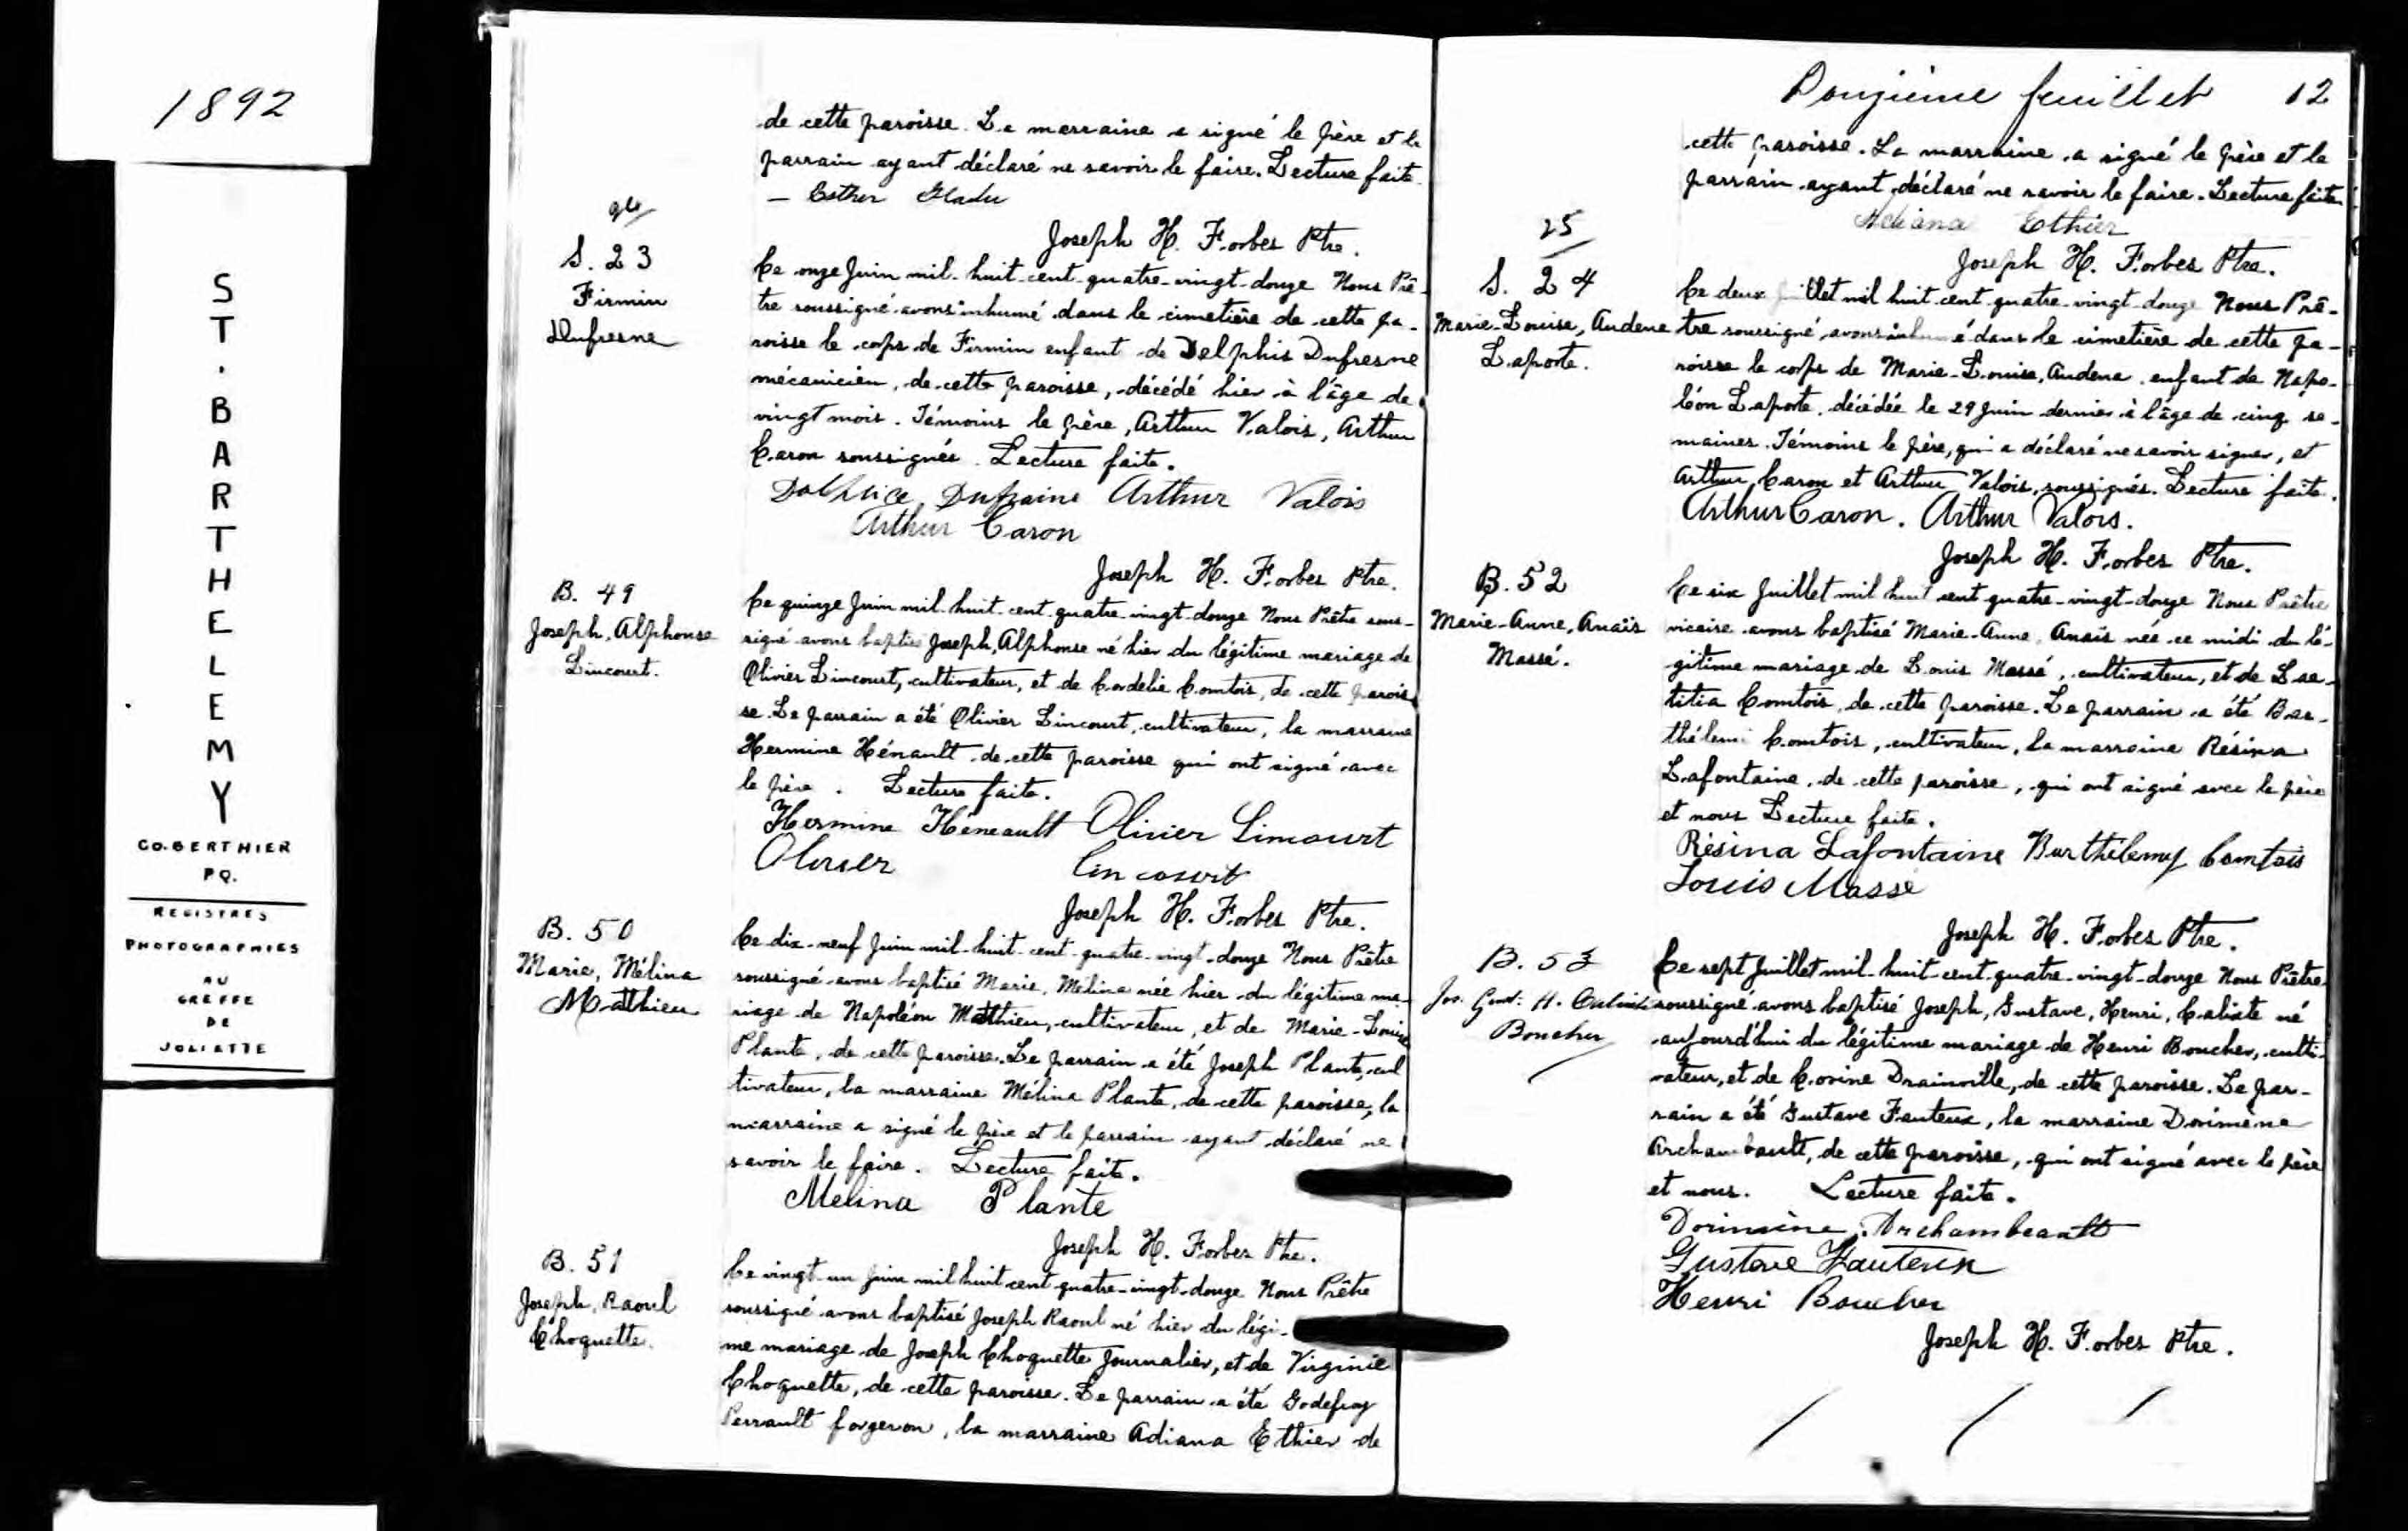 1892
ST. BARTHELEMY
CO. BERTHIER
PQ.
REGISTRES
PHOTOGRAPHIES
AU
GREFFE
DE
JOLIETTE
de cette paroisse. La marraine a signé le père et le
parrain ayant déclaré ne savoir le faire. Lecture faite.
— Esther
Joseph H. Forbes Ptre.
S. 23
Firmin
Dufresne
Ce onze Juin mil-huit-cent-quatre-vingt-douze Nous Prê-
tre soussigné avons inhumé dans le cimetière de cette pa-
roisse le corps de Firmin enfant de Delphis Dufresne
mécanicien, de cette paroisse, décédé hier à l'âge de
vingt mois. Témoins le père, Arthur Valois, Arthur
Caron soussignés. Lecture faite.
Dufraine Arthur Valois
Arthur Caron
Joseph H. Forbes Ptre.
B. 49
Joseph, Alphonse
Lincourt.
Ce quinze Juin mil-huit-cent-quatre-vingt-douze Nous Prêtre sous-
signé avons baptisé Joseph, Alphonse né hier du légitime mariage de
Olivier Lincourt, cultivateur, et de Cordelie Comtois, de cette parois
se. Le parrain a été Olivier Lincourt, cultivateur, la marraine
Hermine Hénault de cette paroisse qui ont signé avec
le père. Lecture faite.
Hermine Héneault Olivier Limcourt
Olivier Lincourt
Joseph H. Forbes Ptre.
B. 50
Marie, Mélina
Mathieu
Ce dix-neuf Juin mil-huit-cent-quatre-vingt-douze Nous Prêtre
soussigné avons baptisé Marie, Mélina née hier du légitime ma-
riage de Napoléon Mathieu, cultivateur, et de Marie-Louise
Plante, de cette paroisse. Le parrain a été Joseph Plante, cul
tivateur, la marraine Mélina Plante, de cette paroisse, la
marraine a signé le père et le parrain ayant déclaré ne
savoir le faire. Lecture faite.
Melina Plante
Joseph H. Forbes Ptre.
B. 51
Joseph, Raoul
Choquette.
Ce vingt-un Juin mil huit-cent-quatre-vingt-douze Nous Prêtre
soussigné avons baptisé Joseph Raoul né hier du légi-
me mariage de Joseph Choquette Journalier, et de Virginie
Choquette, de cette paroisse. Le parrain a été Godefroy
Perrault forgeron, la marraine Adiana Ethier de
Douzième feuillet 12
cette paroisse. La marraine a signé le père et le
parrain ayant déclaré ne savoir le faire. Lecture faite
Adiana Ethier
Joseph H. Forbes Ptre.
25
S. 24
Marie-Louise, Audena
Laporte.
Ce deux Juillet mil huit-cent-quatre-vingt-douze Nous Prê-
tre soussigné, avons inhumé dans le cimetière de cette pa-
roisse le corps de Marie-Louise, Audena enfant de Napo-
léon Laporte, décédée le 29 Juin dernier à l'âge de cinq se-
maines. Témoins le père, qui a déclaré ne savoir signer, et
Arthur Caron et Arthur Valois, soussignés. Lecture faite.
Arthur Caron. Arthur Valois.
Joseph H. Forbes Ptre.
B. 52
Marie-Anne, Anaïs
Massé.
Ce six Juillet mil huit cent quatre-vingt-douze Nous Prêtre
vicaire avons baptisé Marie-Anne, Anaïs née ce midi du lé-
gitime mariage de Louis Massé, cultivateur, et de Lae-
titia Comtois, de cette paroisse. Le parrain a été Bar-
thélemi Comtois, cultivateur, la marraine Résina
Lafontaine, de cette paroisse, qui ont signé avec le père
et nous Lecture faite.
Résina Lafontaine Barthélemy Comtois
Louis Masse
Joseph H. Forbes Ptre.
B. 53
Jos. Gust: H.
Boucher
Ce sept Juillet mil-huit-cent-quatre-vingt-douze Nous Prêtre
soussigné avons baptisé Joseph, Gustave, Henri, Calixte né
aujourd'hui du légitime mariage de Henri Boucher, culti-
vateur, et de Corine Drainville, de cette paroisse. Le par-
rain a été Gustave Fauteux, la marraine Dorimène
Archambault, de cette paroisse, qui ont signé avec le père
et nous. Lecture faite.
Dorimène Archambeault
Gustave Fauteux
Henri Boucher
Joseph H. Forbes Ptre.